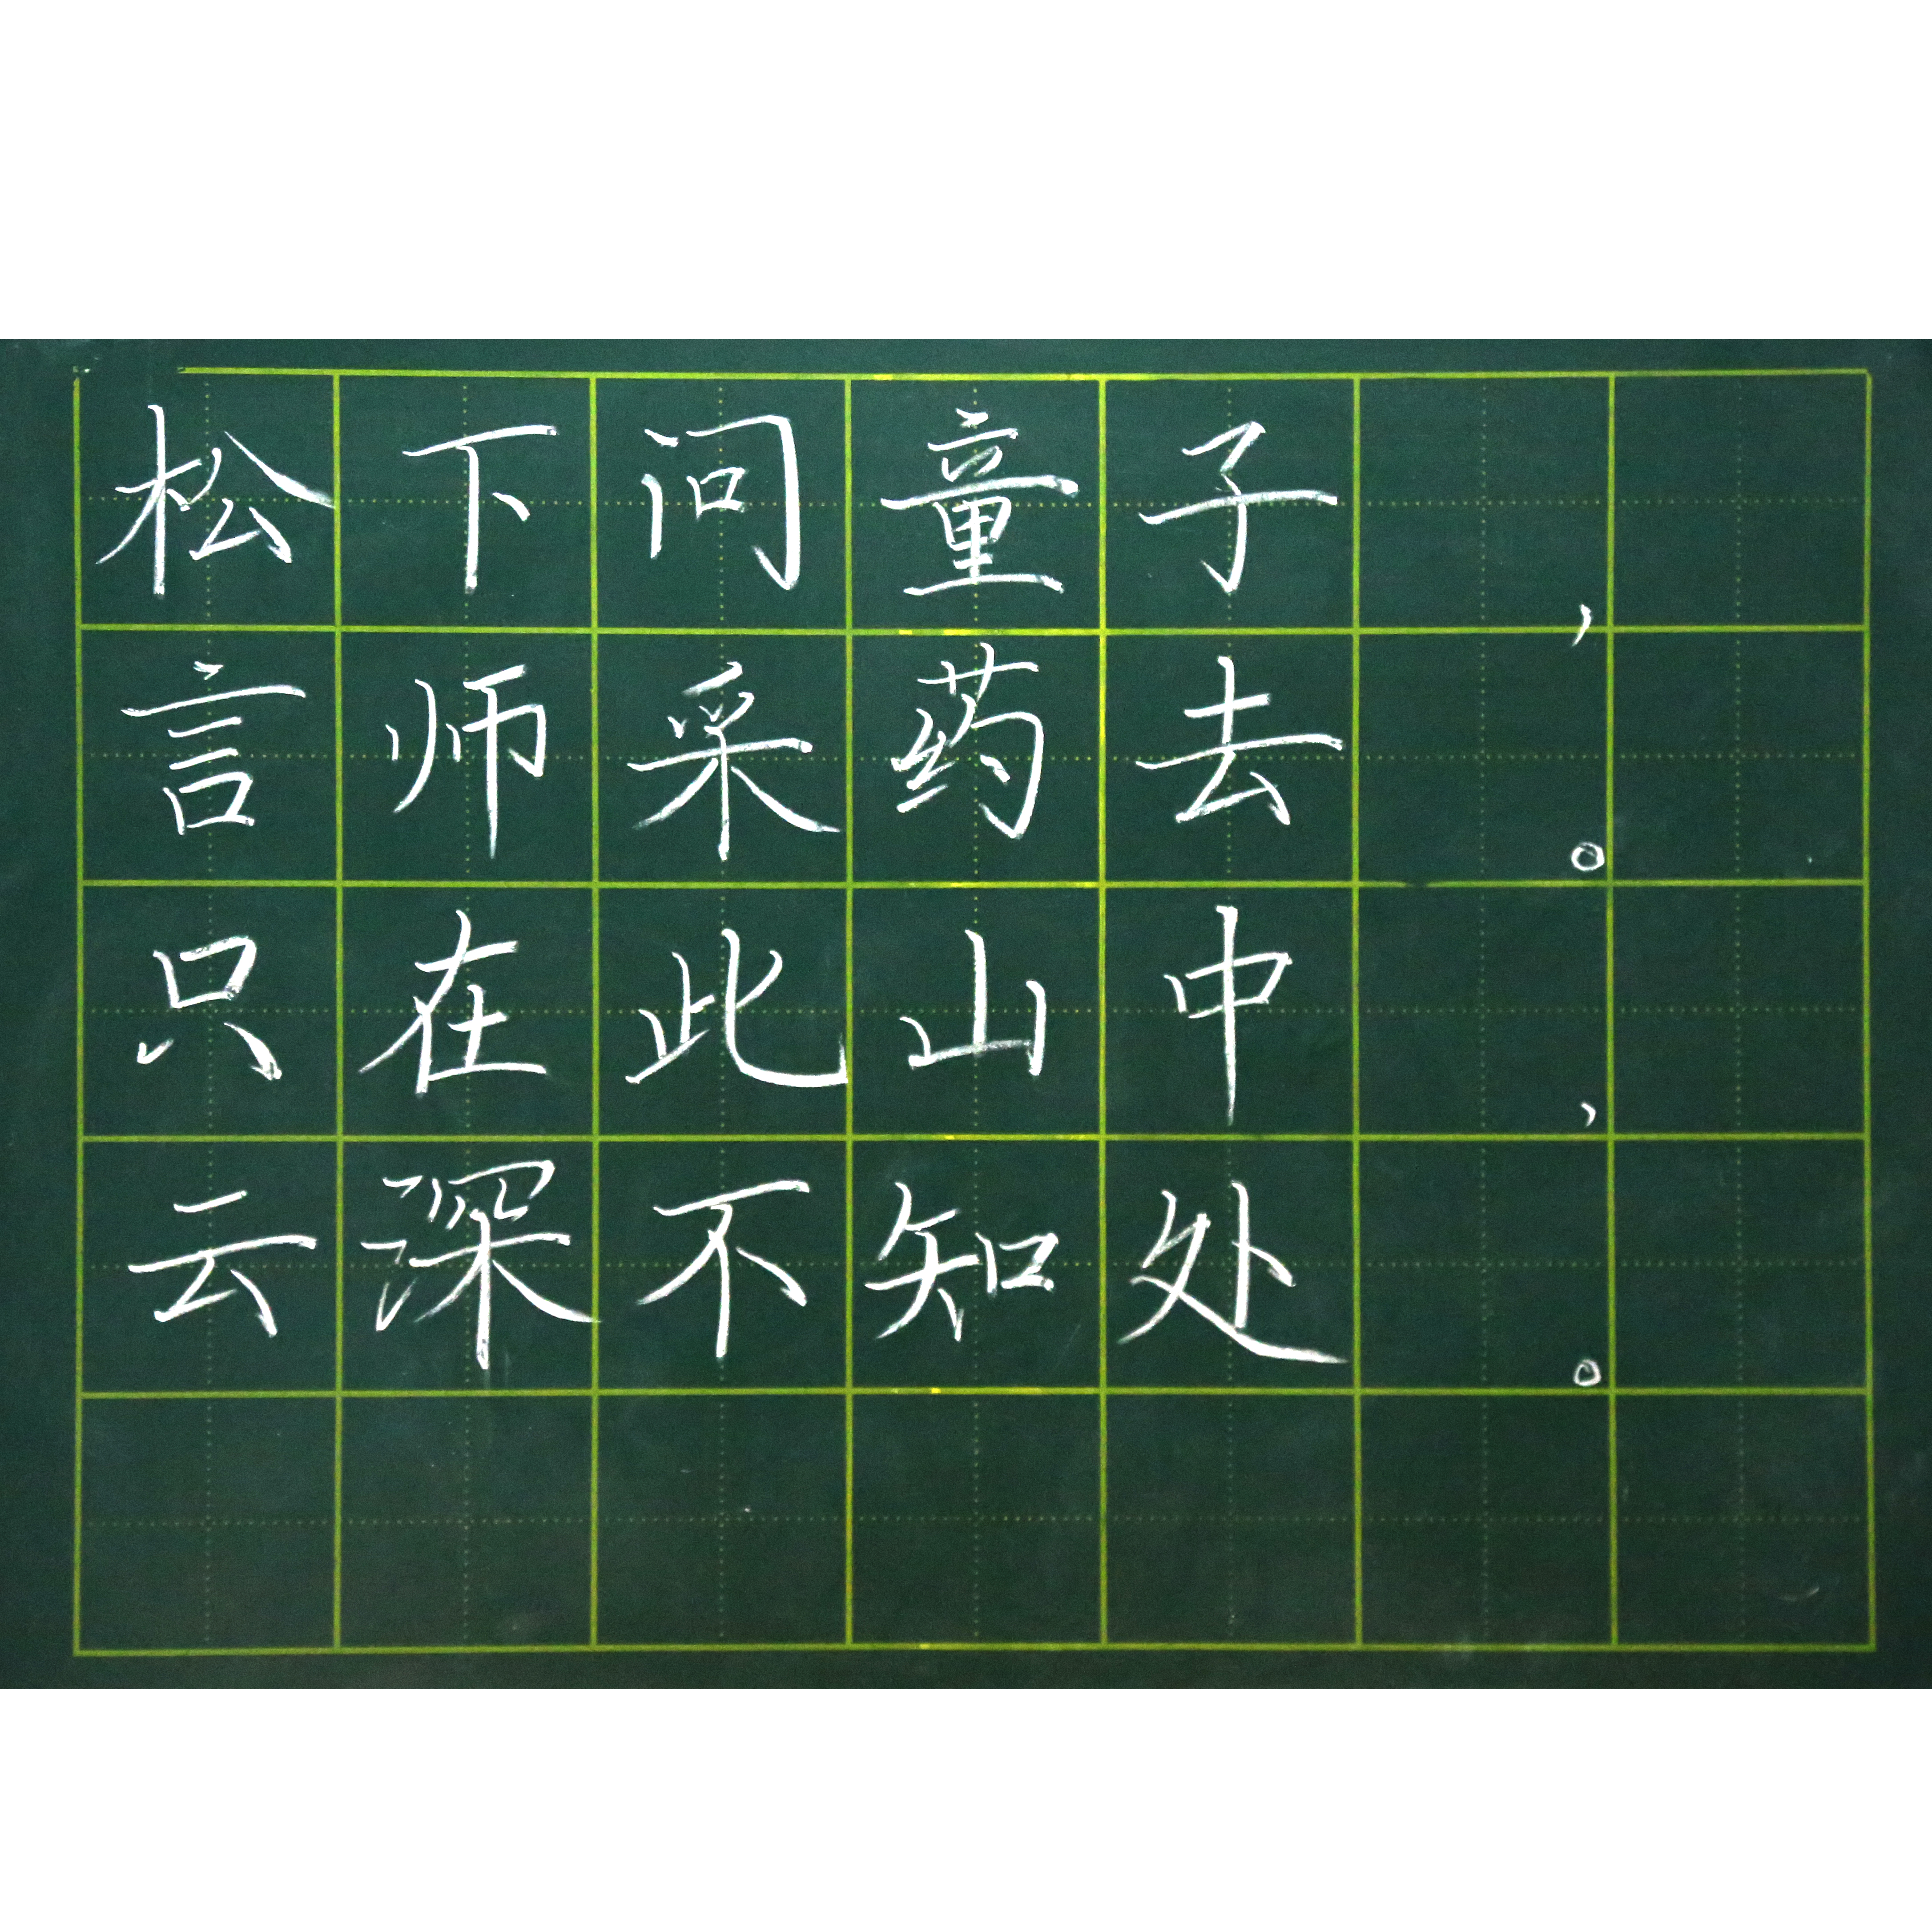 松下问童子,
言师采药去。
只在此山中,
云深不知处。